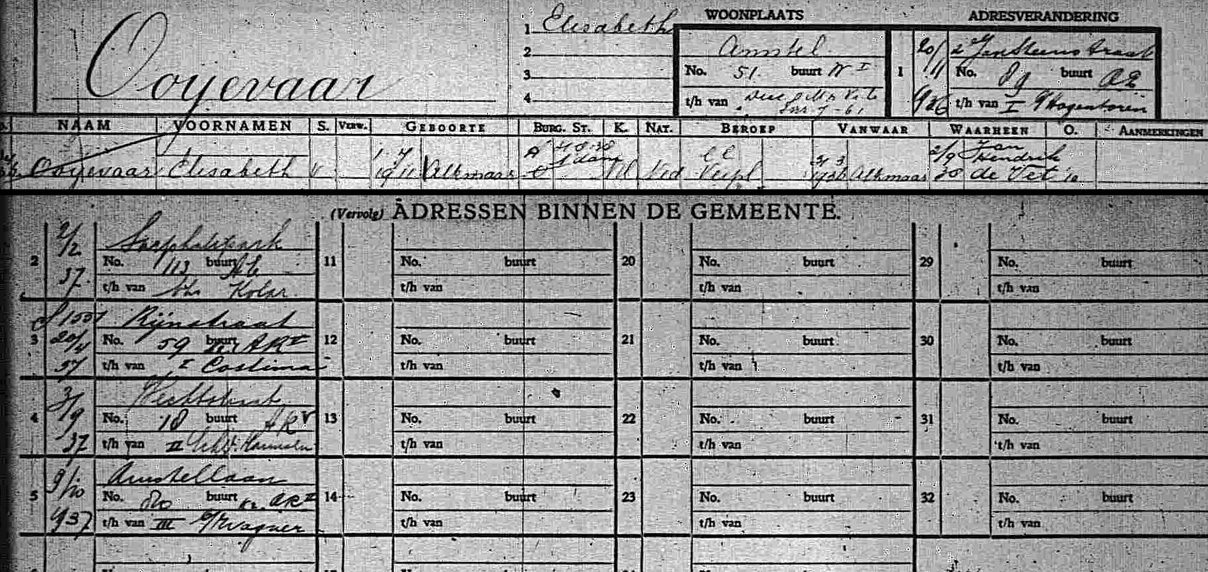 Ooyevaar
1 Elisabeth
2
3
4
WOONPLAATS
Amstel
No. 51. buurt W I
t/h van
ADRESVERANDERING
1
20/11 926
2e Jan Steenstraat
No. 89 buurt
t/h van I
NAAM VOORNAMEN S. VERW. GEBOORTE BURG. ST. K. NAT. BEROEP VANWAAR WAARHEEN O. AANMERKINGEN
Ooyevaar Elisabeth V 1 7 1911 Alkmaar NH Ned Verpl Alkmaar 2/9 38 Jan Hendrik de Vet
(Vervolg) ADRESSEN BINNEN DE GEMEENTE.
2 2/2 37. Sarphatipark
No. 113 buurt
t/h van bhs Kolar.
3 20/4 37 Rijnstraat
No. 59 buurt
t/h van I Costima
4 3/9 37 Vechtstraat
No. 18 buurt
t/h van II
5 9/10 937 Amstellaan
No. 80 buurt
t/h van III Wagner
11 No. buurt
t/h van
12 No. buurt
t/h van
13 No. buurt
t/h van
14 No. buurt
t/h van
20 No. buurt
t/h van
21 No. buurt
t/h van
22 No. buurt
t/h van
23 No. buurt
t/h van
29 No. buurt
t/h van
30 No. buurt
t/h van
31 No. buurt
t/h van
32 No. buurt
t/h van